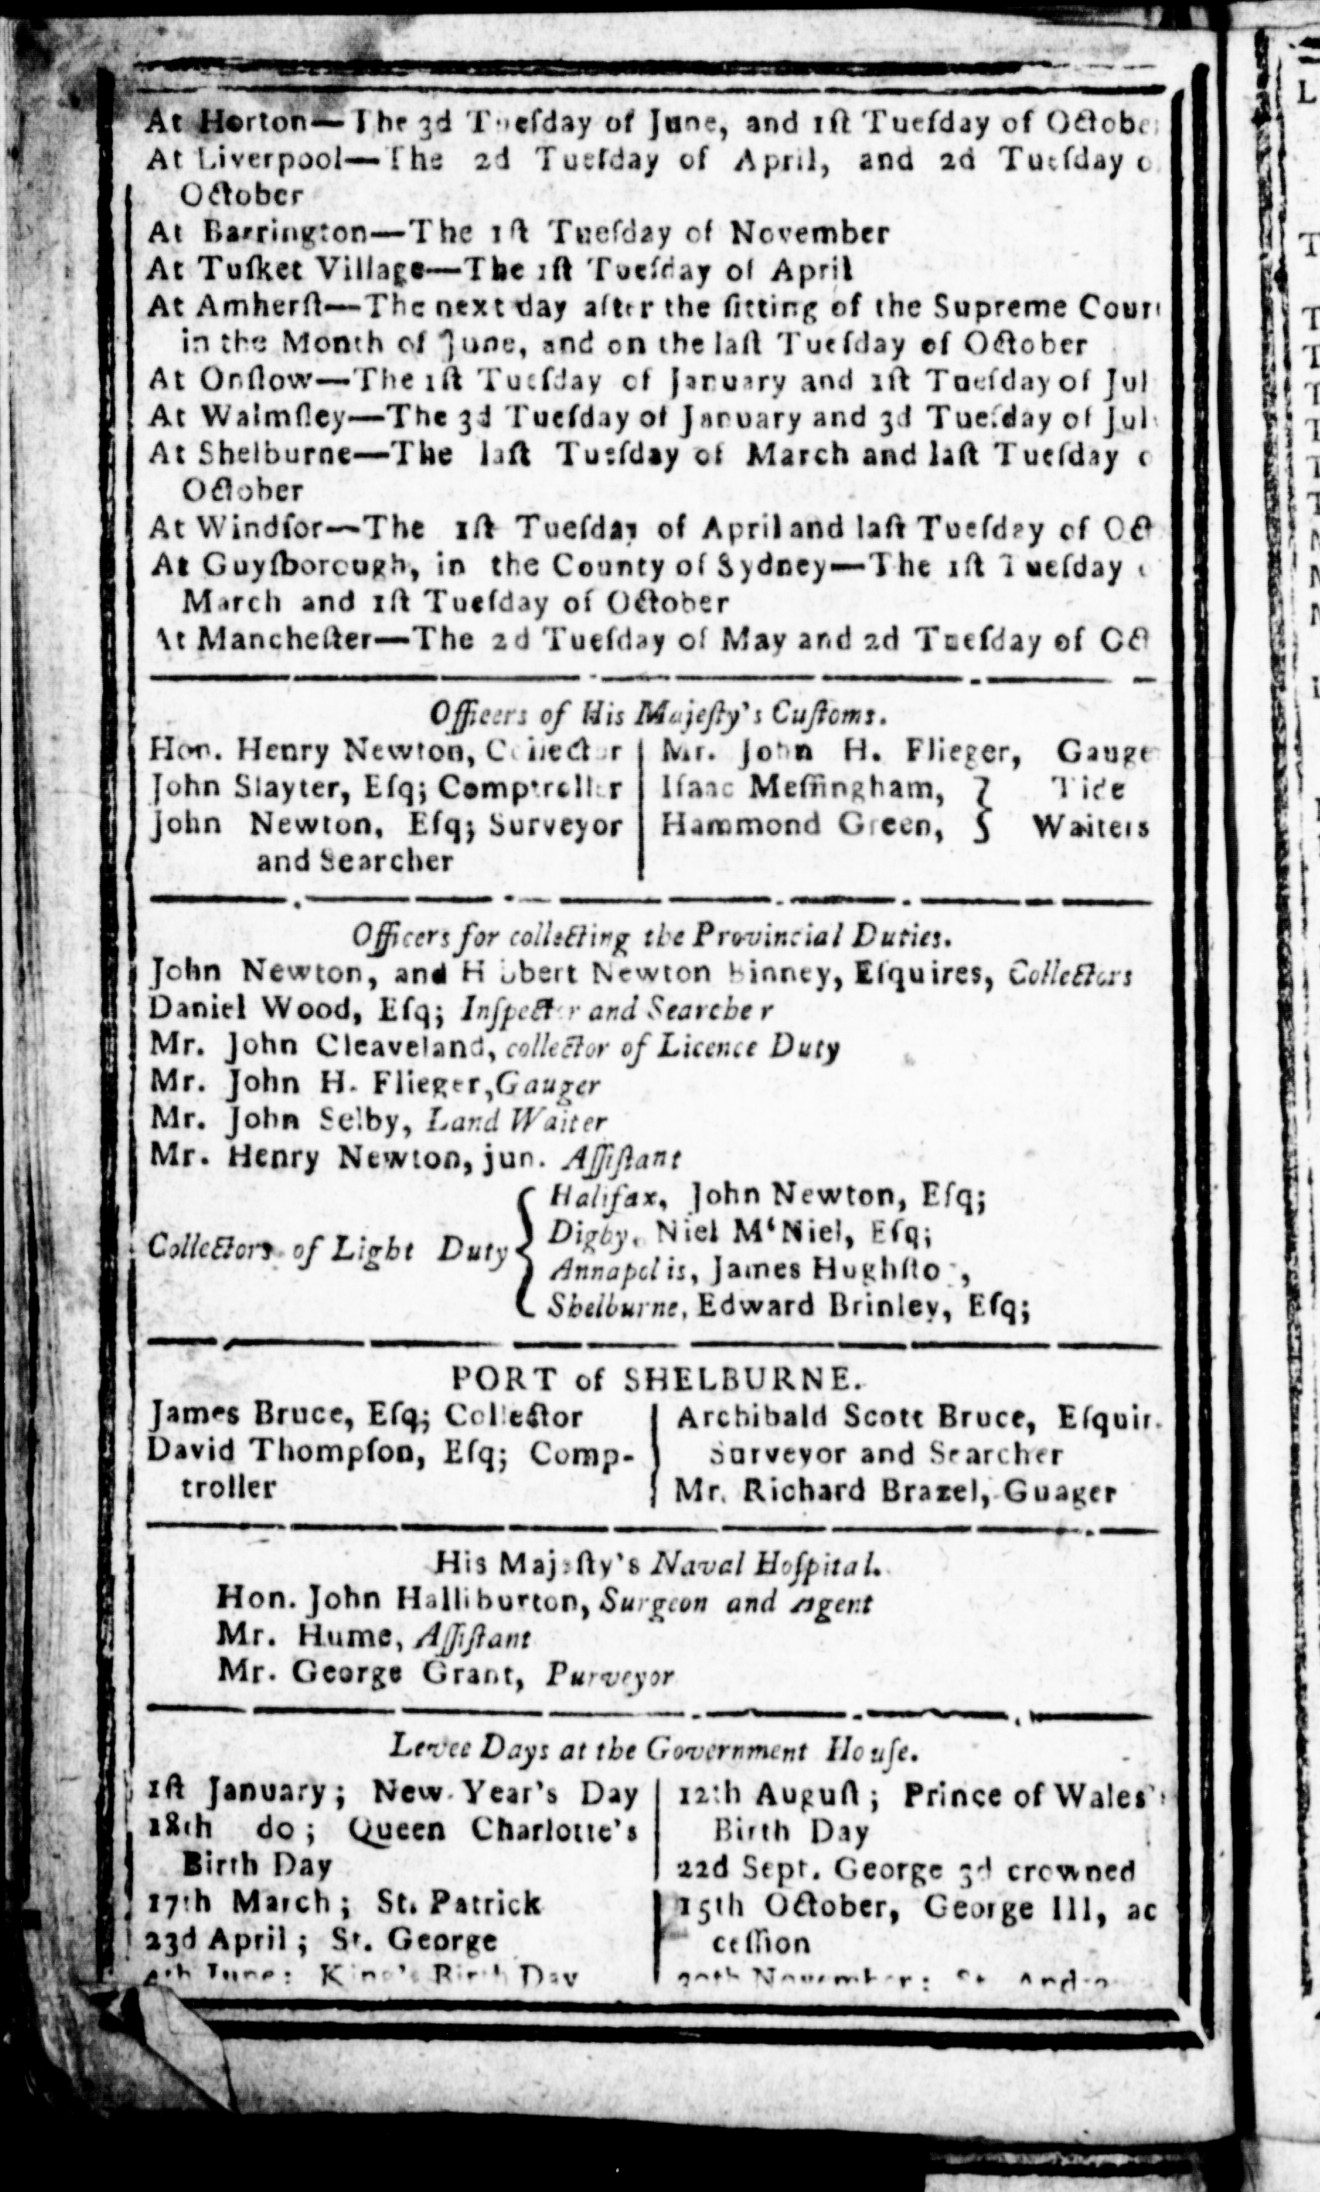 At Horton—The 3d Tueſday of June, and 1ſt Tueſday of Octobe
At Liverpool—The 2d Tueſday of April, and 2d Tueſday o
October
At Barrington—The 1ſt Tueſday of November
At Tuſket Village—The 1ſt Tueſday of April
At Amherſt—The next day after the ſitting of the Supreme Cour
in the Month of June, and on the laſt Tueſday of October
At Onſlow—The 1ſt Tueſday of January and 1ſt Tueſday of Jul
At Walmſley—The 3d Tueſday of January and 3d Tueſday of Jul
At Shelburne—The laſt Tueſday of March and laſt Tueſday o
October
At Windſor—The 1ſt Tueſday of April and laſt Tueſday of Oct
At Guyſborough, in the County of Sydney—The 1ſt Tueſday
March and 1ſt Tueſday of October
At Mancheſter—The 2d Tueſday of May and 2d Tueſday of Oct
Officers of His Majeſty's Cuſtoms.
Hon. Henry Newton, Collector
John Slayter, Eſq; Comptroller
John Newton, Eſq; Surveyor
and Searcher
Mr. John H. Flieger, Gauge
Iſaac Meſſingham, } Tide
Hammond Green, } Waiters
Officers for collecting the Provincial Duties.
John Newton, and Hibbert Newton Binney, Eſquires, Collectors
Daniel Wood, Eſq; Inſpector and Searcher
Mr. John Cleaveland, collector of Licence Duty
Mr. John H. Flieger, Gauger
Mr. John Selby, Land Waiter
Mr. Henry Newton, jun. Aſſiſtant
Collectors of Light Duty { Halifax, John Newton, Eſq;
Digby, Niel M‘Niel, Eſq;
Annapolis, James Hughſton,
Shelburne, Edward Brinley, Eſq;
PORT of SHELBURNE.
James Bruce, Eſq; Collector
David Thompſon, Eſq; Comp-
troller
Archibald Scott Bruce, Eſquir.
Surveyor and Searcher
Mr. Richard Brazel, Guager
His Majeſty's Naval Hoſpital.
Hon. John Halliburton, Surgeon and Agent
Mr. Hume, Aſſiſtant
Mr. George Grant, Purveyor
Levee Days at the Government Houſe.
1ſt January; New Year's Day
18th do; Queen Charlotte's
Birth Day
17th March; St. Patrick
23d April; St. George
4th June; King's Birth Day
12th Auguſt; Prince of Wales'
Birth Day
22d Sept. George 3d crowned
15th October, George III, ac
ceſſion
30th November; St. Andrew